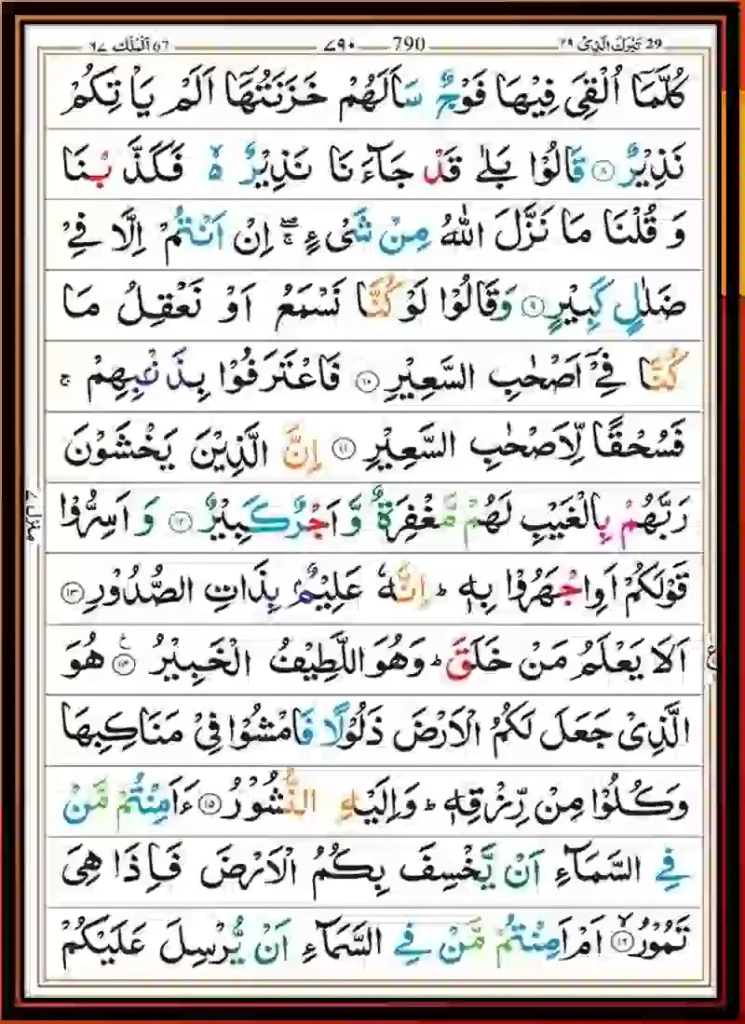 29 تَبٰرَكَ الَّذِیْ ۲۹ 790 ۷۹۰ 67 اَلْمُلْك ۶۷
كُلَّمَاۤ اُلْقِیَ فِیْهَا فَوْجٌ سَاَلَهُمْ خَزَنَتُهَاۤ اَلَمْ یَاْتِكُمْ
نَذِیْرٌ ۸ قَالُوْا بَلٰی قَدْ جَآءَنَا نَذِیْرٌ ۙ۬ فَكَذَّبْنَا
وَ قُلْنَا مَا نَزَّلَ اللّٰهُ مِنْ شَیْءٍ ۚۖ اِنْ اَنْتُمْ اِلَّا فِیْ
ضَلٰلٍ كَبِیْرٍ ۹ وَقَالُوْا لَوْ كُنَّا نَسْمَعُ اَوْ نَعْقِلُ مَا
كُنَّا فِیْۤ اَصْحٰبِ السَّعِیْرِ ۱۰ فَاعْتَرَفُوْا بِذَنْۢبِهِمْ ۚ
فَسُحْقًا لِّاَصْحٰبِ السَّعِیْرِ ۱۱ اِنَّ الَّذِیْنَ یَخْشَوْنَ
رَبَّهُمْ بِالْغَیْبِ لَهُمْ مَّغْفِرَةٌ وَّ اَجْرٌ كَبِیْرٌ ۱۲ وَ اَسِرُّوْا
قَوْلَكُمْ اَوِاجْهَرُوْا بِهٖ ؕ اِنَّهٗ عَلِیْمٌۢ بِذَاتِ الصُّدُوْرِ ۱۳
اَلَا یَعْلَمُ مَنْ خَلَقَ ؕ وَهُوَ اللَّطِیْفُ الْخَبِیْرُ ۱۴ هُوَ
الَّذِیْ جَعَلَ لَكُمُ الْاَرْضَ ذَلُوْلًا فَامْشُوْا فِیْ مَنَاكِبِهَا
وَكُلُوْا مِنْ رِّزْقِهٖ ؕ وَاِلَیْهِ النُّشُوْرُ ۱۵ ءَاَمِنْتُمْ مَّنْ
فِی السَّمَآءِ اَنْ یَّخْسِفَ بِكُمُ الْاَرْضَ فَاِذَا هِیَ
تَمُوْرُ ۙ ۱۶ اَمْ اَمِنْتُمْ مَّنْ فِی السَّمَآءِ اَنْ یُّرْسِلَ عَلَیْكُمْ